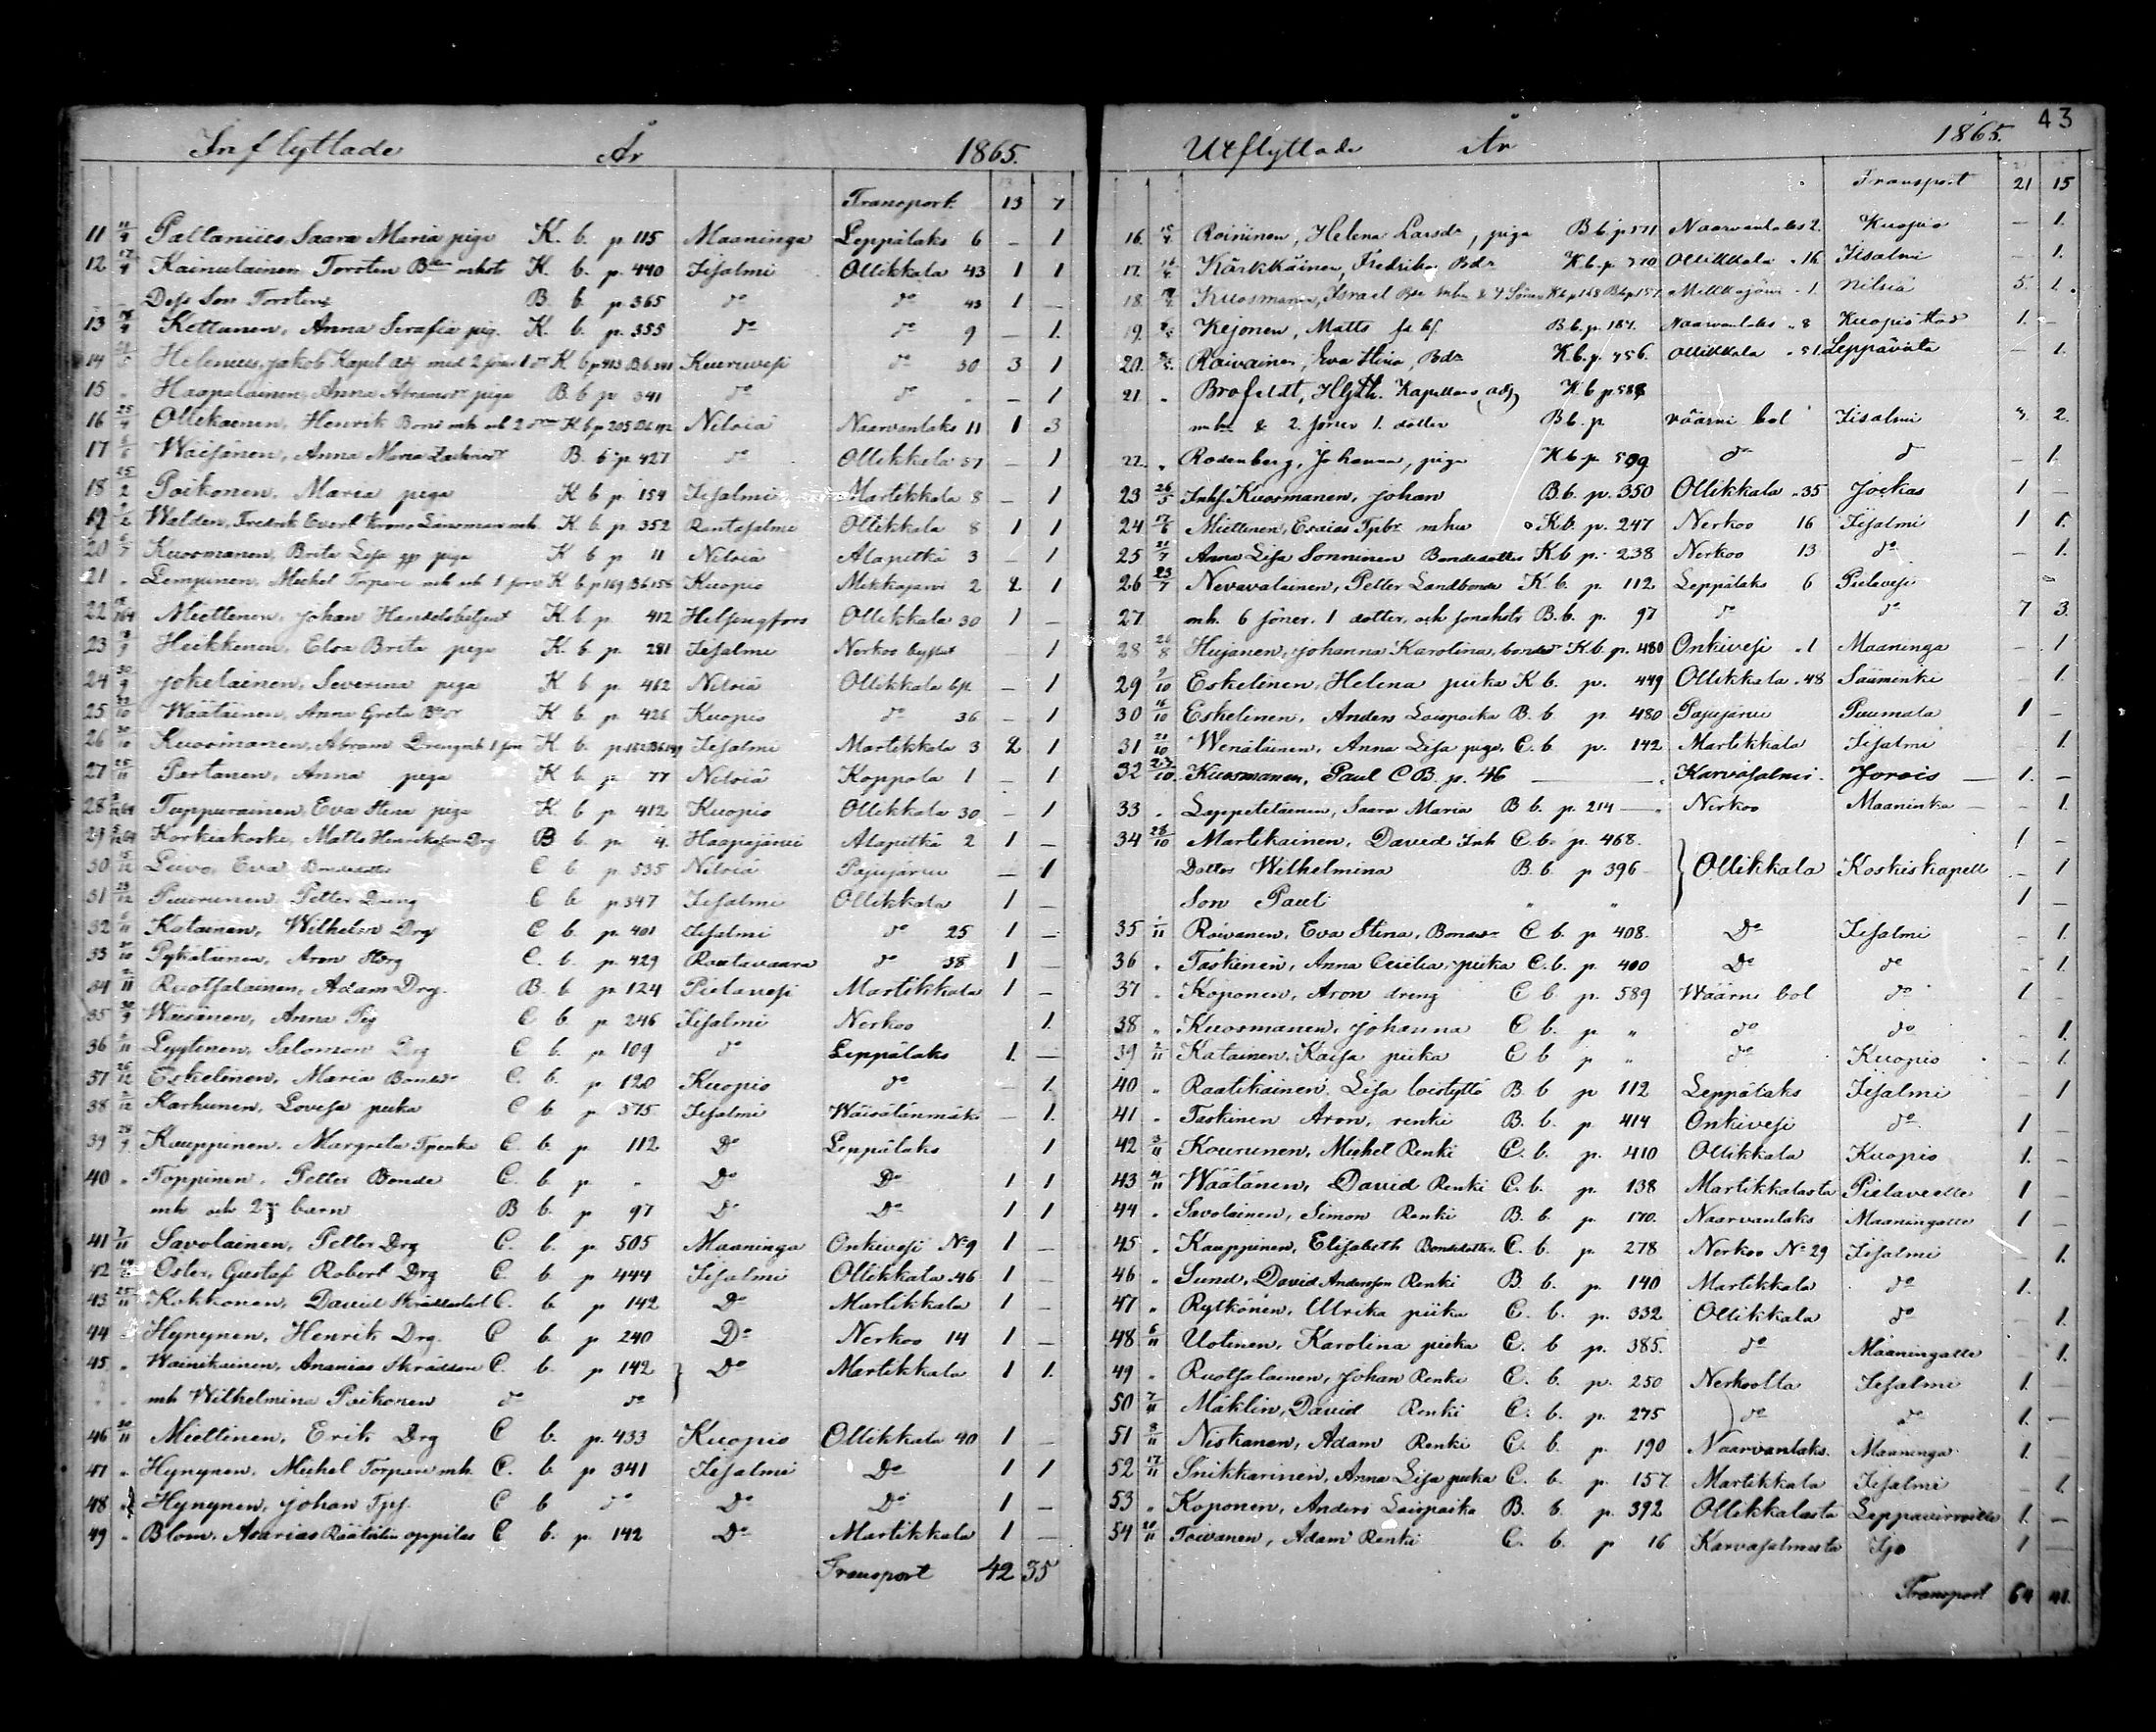 Inflyttade År 1865.
Transport 13 7
11 11/4 Pattanius, Saara Maria piga K. b. p 115 Maaninga Leppälaks 6 – 1
12 17/4 Kainulainen Torsten K. b. p. 440 Iisalmi Ollikkala 43 1 1
Dess Son Torsten B. b. p 365 do do 43 1 –
13 Kettunen, Anna Serafia pig. K. b. p. 355 do do 9 – 1.
14 Helenius, Jakob Kapel adj med 2 söner 1 K b p 413 Kuruvesi do 30 3 1
15 " Haapalainen, Anna piga B. b p 341 do do " – 1
16 25/4 Ollikainen, Henrik mh o 2 K b p 205 Nilsiä Naarvanlaks 11 1 3
17 Wäisänen, Anna Maria B. b p 427 do Ollikkala 57 – 1
18 25/2 Poikonen, Maria piga K b p. 154 Iisalmi Martikkala 8 – 1
19 Walden, Fredrik Evert Krono Länsman mh K. b. p. 352 Rantasalmi Ollikkala 8 1 1
20 6/7 Kuosmanen, Brita Lisa piga K b p 11 Nilsiä Alapitkä 3 – 1
21 " Lempinen, Mickel Torpare mh o 1 son K b p 169 B b 158 Kuopio Mikkajärvi 2 2 1
22 Miettinen, Johan Handelsbetjent K. b. p. 412 Helsingfors Ollikkala 30 1 –
23 Heikkinen, Elsa Brita piga K. b p. 281 Iisalmi Nerkoo – 1
24 30/9 Jokelainen, Severina piga K b p. 462 Nilsiä Ollikkala – 1
25 Wäätäinen, Anna Greta K b. p. 426 Kuopio do 36 – 1
26 30/10 Kuosmanen, Abram Dreng 1 son K. b. Iisalmi Martikkala 3 2 1
27 25/11 Pertanen, Anna piga K b p 77 Nilsiä Koppola 1 – 1
28 Tuppurainen, Eva Stina piga K. b. p. 412 Kuopio Ollikkala 30 – 1
29 Korkiakoski, Matts Henriksson Drg B b. p 4. Haapajärvi Alapitkä 2 1 –
30 15/12 Leivo, Eva Bondedotter C b p. 535 Nilsiä Pajujärvi – 1
31 23/12 Puurunen Petter Dreng C b p 347 Iisalmi Ollikkala 1 –
32 6/11 Katainen, Wilhelm Drg C b. p. 401 Iisalmi do 25 1 –
33 Pykäläinen, Aron Drg C. b. p. 429 Rautavaara do 38 1 –
34 2/11 Ruotsalainen, Adam Drg. B. b p. 124 Pielavesi Martikkala 1 –
35 30/9 Wäisänen, Anna Pig C b. p 246 Iisalmi Nerkoo 1.
36 Lyytinen, Salomon Drg C b. p 109 do Leppälaks 1. –
37 26/12 Eskelinen, Maria Bonded. C. b. p 120 Kuopio do – 1.
38 Karhunen, Lovisa piika C b p 375 Iisalmi Wäisälänmäki – 1.
39 28/9 Kauppinen, Margreta C. b. p 112 Do Leppälaks 1
40 " Toppinen, Petter Bonde C. b p " Do Do 1 1
mh och 2 barn B b. p 97 Do Do 1 1
41 7/11 Savolainen, Petter Drg C. b. p 505 Maaninga Onkivesi No 9 1 –
42 Oster, Gustaf Robert Drg C. b. p 444 Iisalmi Ollikkala 46 1 –
43 25/11 Kokkonen, David C. b p 142 Do Martikkala 1 –
44 " Hynynen, Henrik Drg. C b. p 240 Do Nerkoo 14 1 –
45 " Wainikainen, Ananias Skräddare C. b. p 142 Do Martikkala 1 1.
" mh Wilhelmina Poikonen do do
46 30/11 Miettinen, Erik Drg C b. p. 433 Kuopio Ollikkala 40 1 –
47 " Hynynen, Mickel Torpare mh. C. b p 341 Iisalmi Do 1 1
48 Hynynen, Johan C b do Do Do 1 –
49 " Blom, Asarias Räätälin oppilas C b. p. 142 Do Martikkala 1 –
Transport 42 35
43
Utflyttade År 1865.
Transport 21 15
16. Roininen, Helena Larsdr, piga B b p 571 Naarvanlaks 2. Kuopio – 1.
17. Kärkkäinen, Fredrika Bdr K. b. p 370 Ollikkala 16 Iisalmi – 1.
18. Kuosmanen, Israel mh & 4 Söner 1. Nilsiä 5. 1.
19. Kejonen, Matts B. b. p. 187. Naarvanlaks 8 Kuopio stad 1. –
20. Raivainen, Eva Stina, Bdr K. b. p. 456. Ollikkala 51. Leppävirta – 1.
21. " Brofeldt, Kapellans adj K b p 588
mh & 2 söner 1. dotter B b. p väärni bol Iisalmi 3. 2.
22. " Rosenberg, Johanna, piga K b p 589 do do – 1.
23 26/5 Inh. Kuosmanen, Johan B. b. p. 350 Ollikkala 35 Jockas 1 –
24 17/6 Miettinen, Esaias mhu K b. p. 247 Nerkoo 16 Iisalmi 1 1.
25 21/7 Anna Lisa Sonninen Bondedotter K b p. 238 Nerkoo 13 do – 1.
26 23/7 Nevavalainen, Petter Landbonde K. b. p. 112 Leppälaks 6 Pielavesi
27 mh. 6 söner. 1 dotter, och B. b. p. 97 do do 7 3.
28 26/8 Hujanen, Johanna Karolina, K. b. p. 480 Onkivesi 1 Maaninga – 1
29 9/10 Eskelinen, Helena piika K b. p. 449 Ollikkala 48 Sääminki – 1.
30 16/10 Eskelinen, Anders Loispoika B. b. p. 480 Pajujärvi Puumala 1 –
31 21/10 Wenäläinen, Anna Lisa piga. C. b p. 142 Martikkala Iisalmi 1.
32 23/10. Kuosmanen, Paul C B. p. 46 — Karvasalmi. Jorois — 1. –
33 . Leppeteläinen, Saara Maria B b. p. 214 — Nerkoo Maaninka – – 1.
34 28/10 Martikainen, David Inh C. b. p. 468. 1 –
Dotter Wilhelmina B. b. p 396 Ollikkala Koskis kapell – 1
Son Pauli " " 1 –
35 1/11 Roivanen, Eva Stina, C b. p 408. Do Iisalmi – 1.
36 " Taskinen, Anna Cecilia, piika C. b. p. 400 Do do – 1.
37 " Koponen, Aron dreng C b. p. 589 Wäärni bol do 1 –
38 " Kuosmanen, Johanna C b. p " do do – 1.
39 2/11 Katainen, Kaisa piika C b p " do Kuopio – 1.
40 " Raatikainen. Lisa loistyttö B. b p 112 Leppälaks Iisalmi – 1
41 " Taskinen Aron, renki B. b. p. 414 Onkivesi do 1 –
42 3/11 Kourunen, Michel Renki C. b. p. 410 Ollikkala Kuopio 1. –
43 4/11 Wäätänen, David Renki C. b. p. 138 Martikkalasta Pielaveelle 1 –
44 " Savolainen, Simon Renki B. b. p 170. Naarvanlaks Maaningalle 1 –
45 " Kauppinen, Elisabeth Bondedotter. C. b. p. 278 Nerkoo No 29 Iisalmi 1.
46 " Sund, David Andersson Renki B b. p. 140 Martikkala do 1.
47 " Rytkönen, Ulrika piika C. b. p. 332 Ollikkala do – 1.
48 6/11 Uotinen, Karolina piika C. b p. 385. do Maaningalle – 1.
49 " Ruotsalainen, Johan Renki C. b. p. 250 Nerkoolta Iisalmi 1. –
50 7/11 Mäklin, David Renki C. b. p. 275 do do 1. –
51 8/11 Niskanen, Adam Renki C. b. p. 190 Naarvanlaks. Maaninga 1. –
52 17/11 Snikkarinen, Anna Lisa piika C. b. p. 157. Martikkala Iisalmi – 1.
53 " Koponen, Anders Loispoika B. b. p. 392 Ollikkalasta Leppävirroille 1. –
54 20/11 Toivanen, Adam Renki C. b. p 16 Karvasalmesta Ijo 1 –
Transport 64 41.